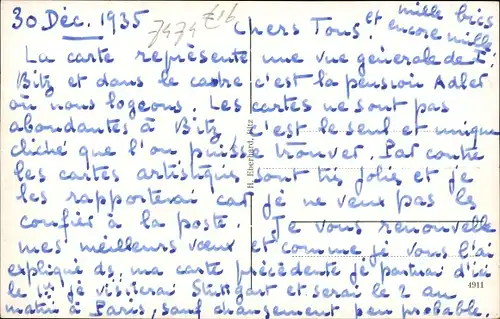 30 Déc. 1935
Chers Tous. et mille bises
et encore mille.
La carte représente une vue générale de
Bitz et dans le cadre c'est la pension Adler
où nous logeons. Les cartes ne sont pas
abondantes à Bitz, c'est le seul et unique
cliché que l'on puisse trouver. Par contre
les cartes artistiques sont très jolies et je
les rapporterai car je ne veux pas les
confier à la poste. Je vous renouvelle
mes meilleurs vœux et comme je vous l'ai
expliqué ds. ma carte précédente je partirai d'ici
le 1er je visiterai Stuttgart et serai le 2 au
matin à Paris, sauf changement peu probable.
H. Eberhard, Bitz
4911